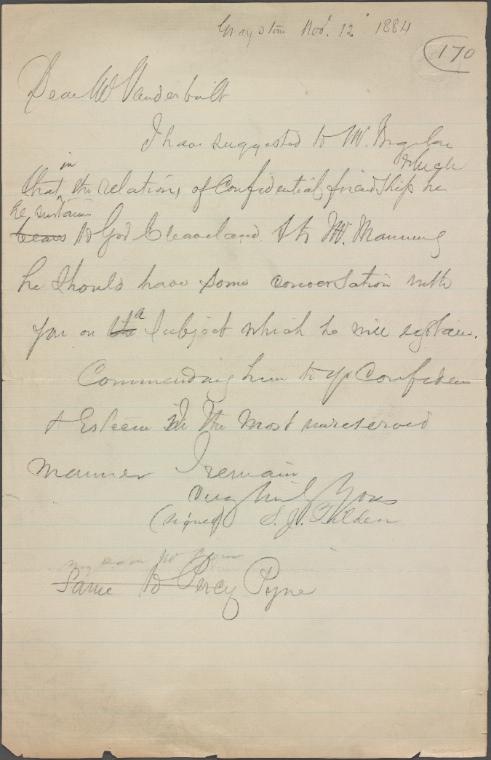 Graystone Nov. 12 1884
170
Dear Mr Vanderbilt
I have suggested to Mr. Bigelow
that in the relations of Confidential friendship which he
he sustains
bears to Gov Cleaveland & to Mr. Manning
he should have some conversation with
you on the a subject which he will explain.
Commending him to yr Confidence
& Esteem in the most unreserved
manner I remain
Very truly Yours
(signed) S. J. Tilden
Same to Percy Pyne